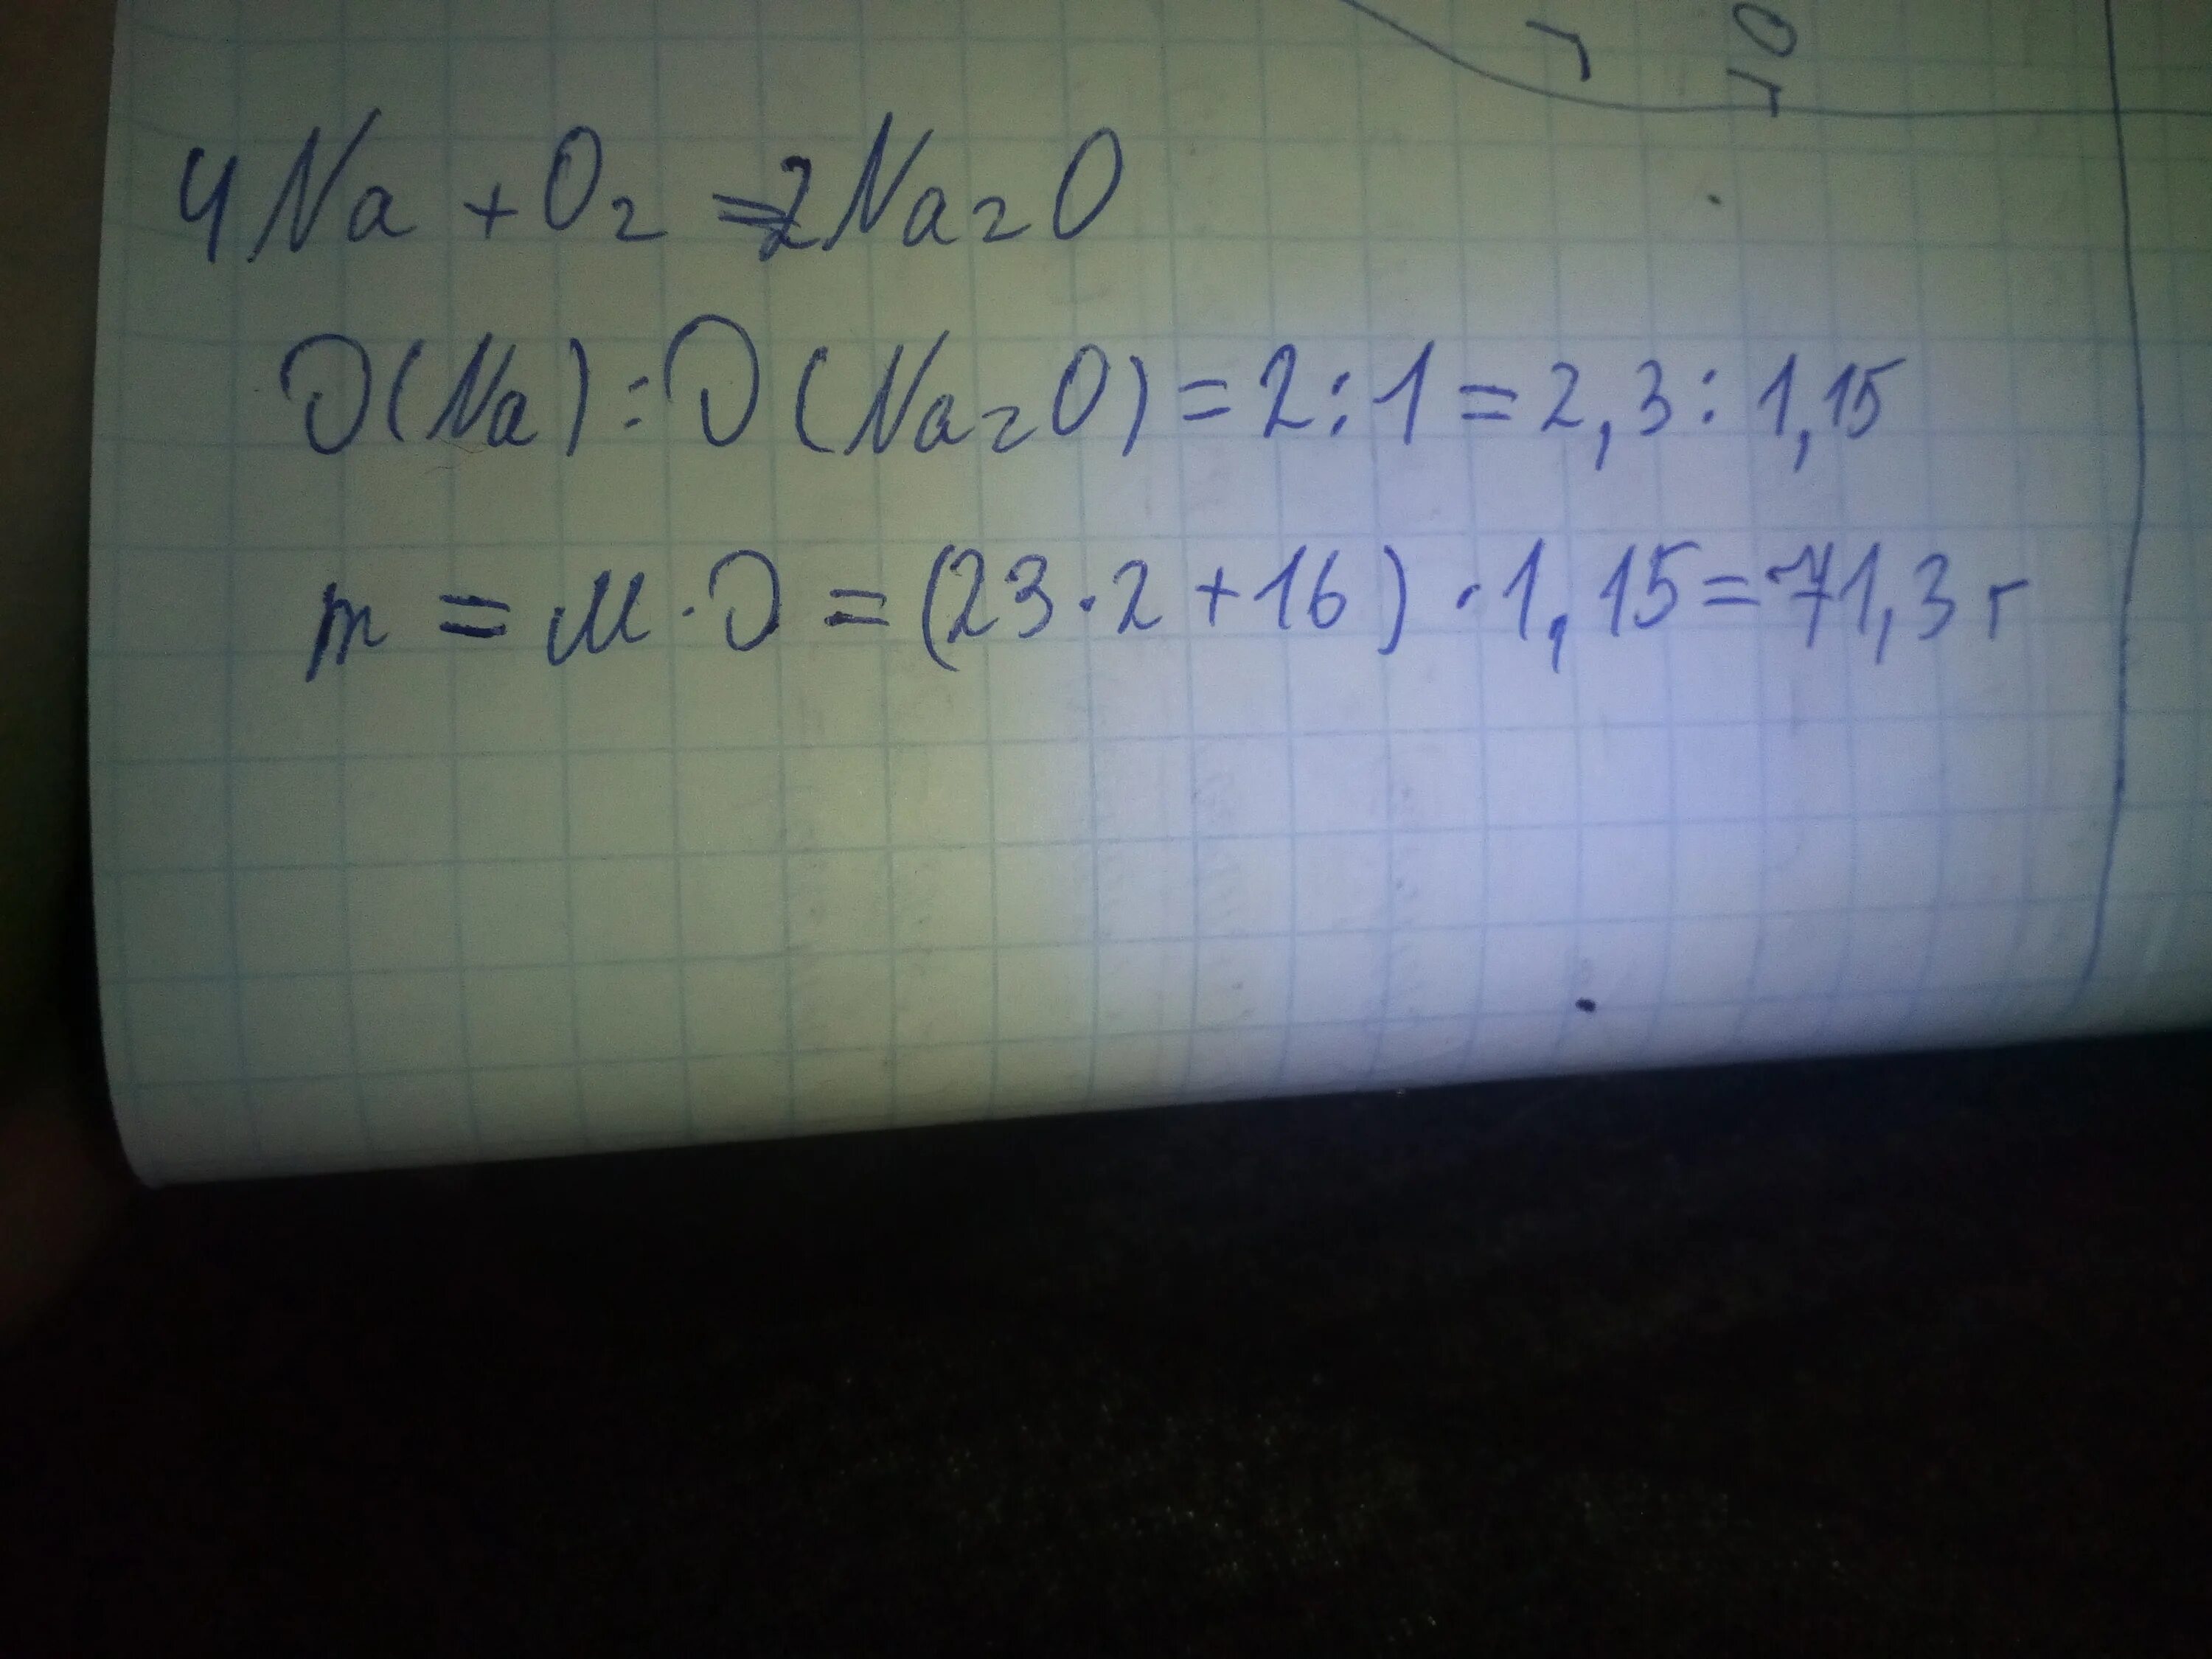 4Na + O2 = 2Na2O
υ(Na) : υ(Na2O) = 2 : 1 = 2,3 : 1,15
m = M · υ = (23 · 2 + 16) · 1,15 = 71,3 г